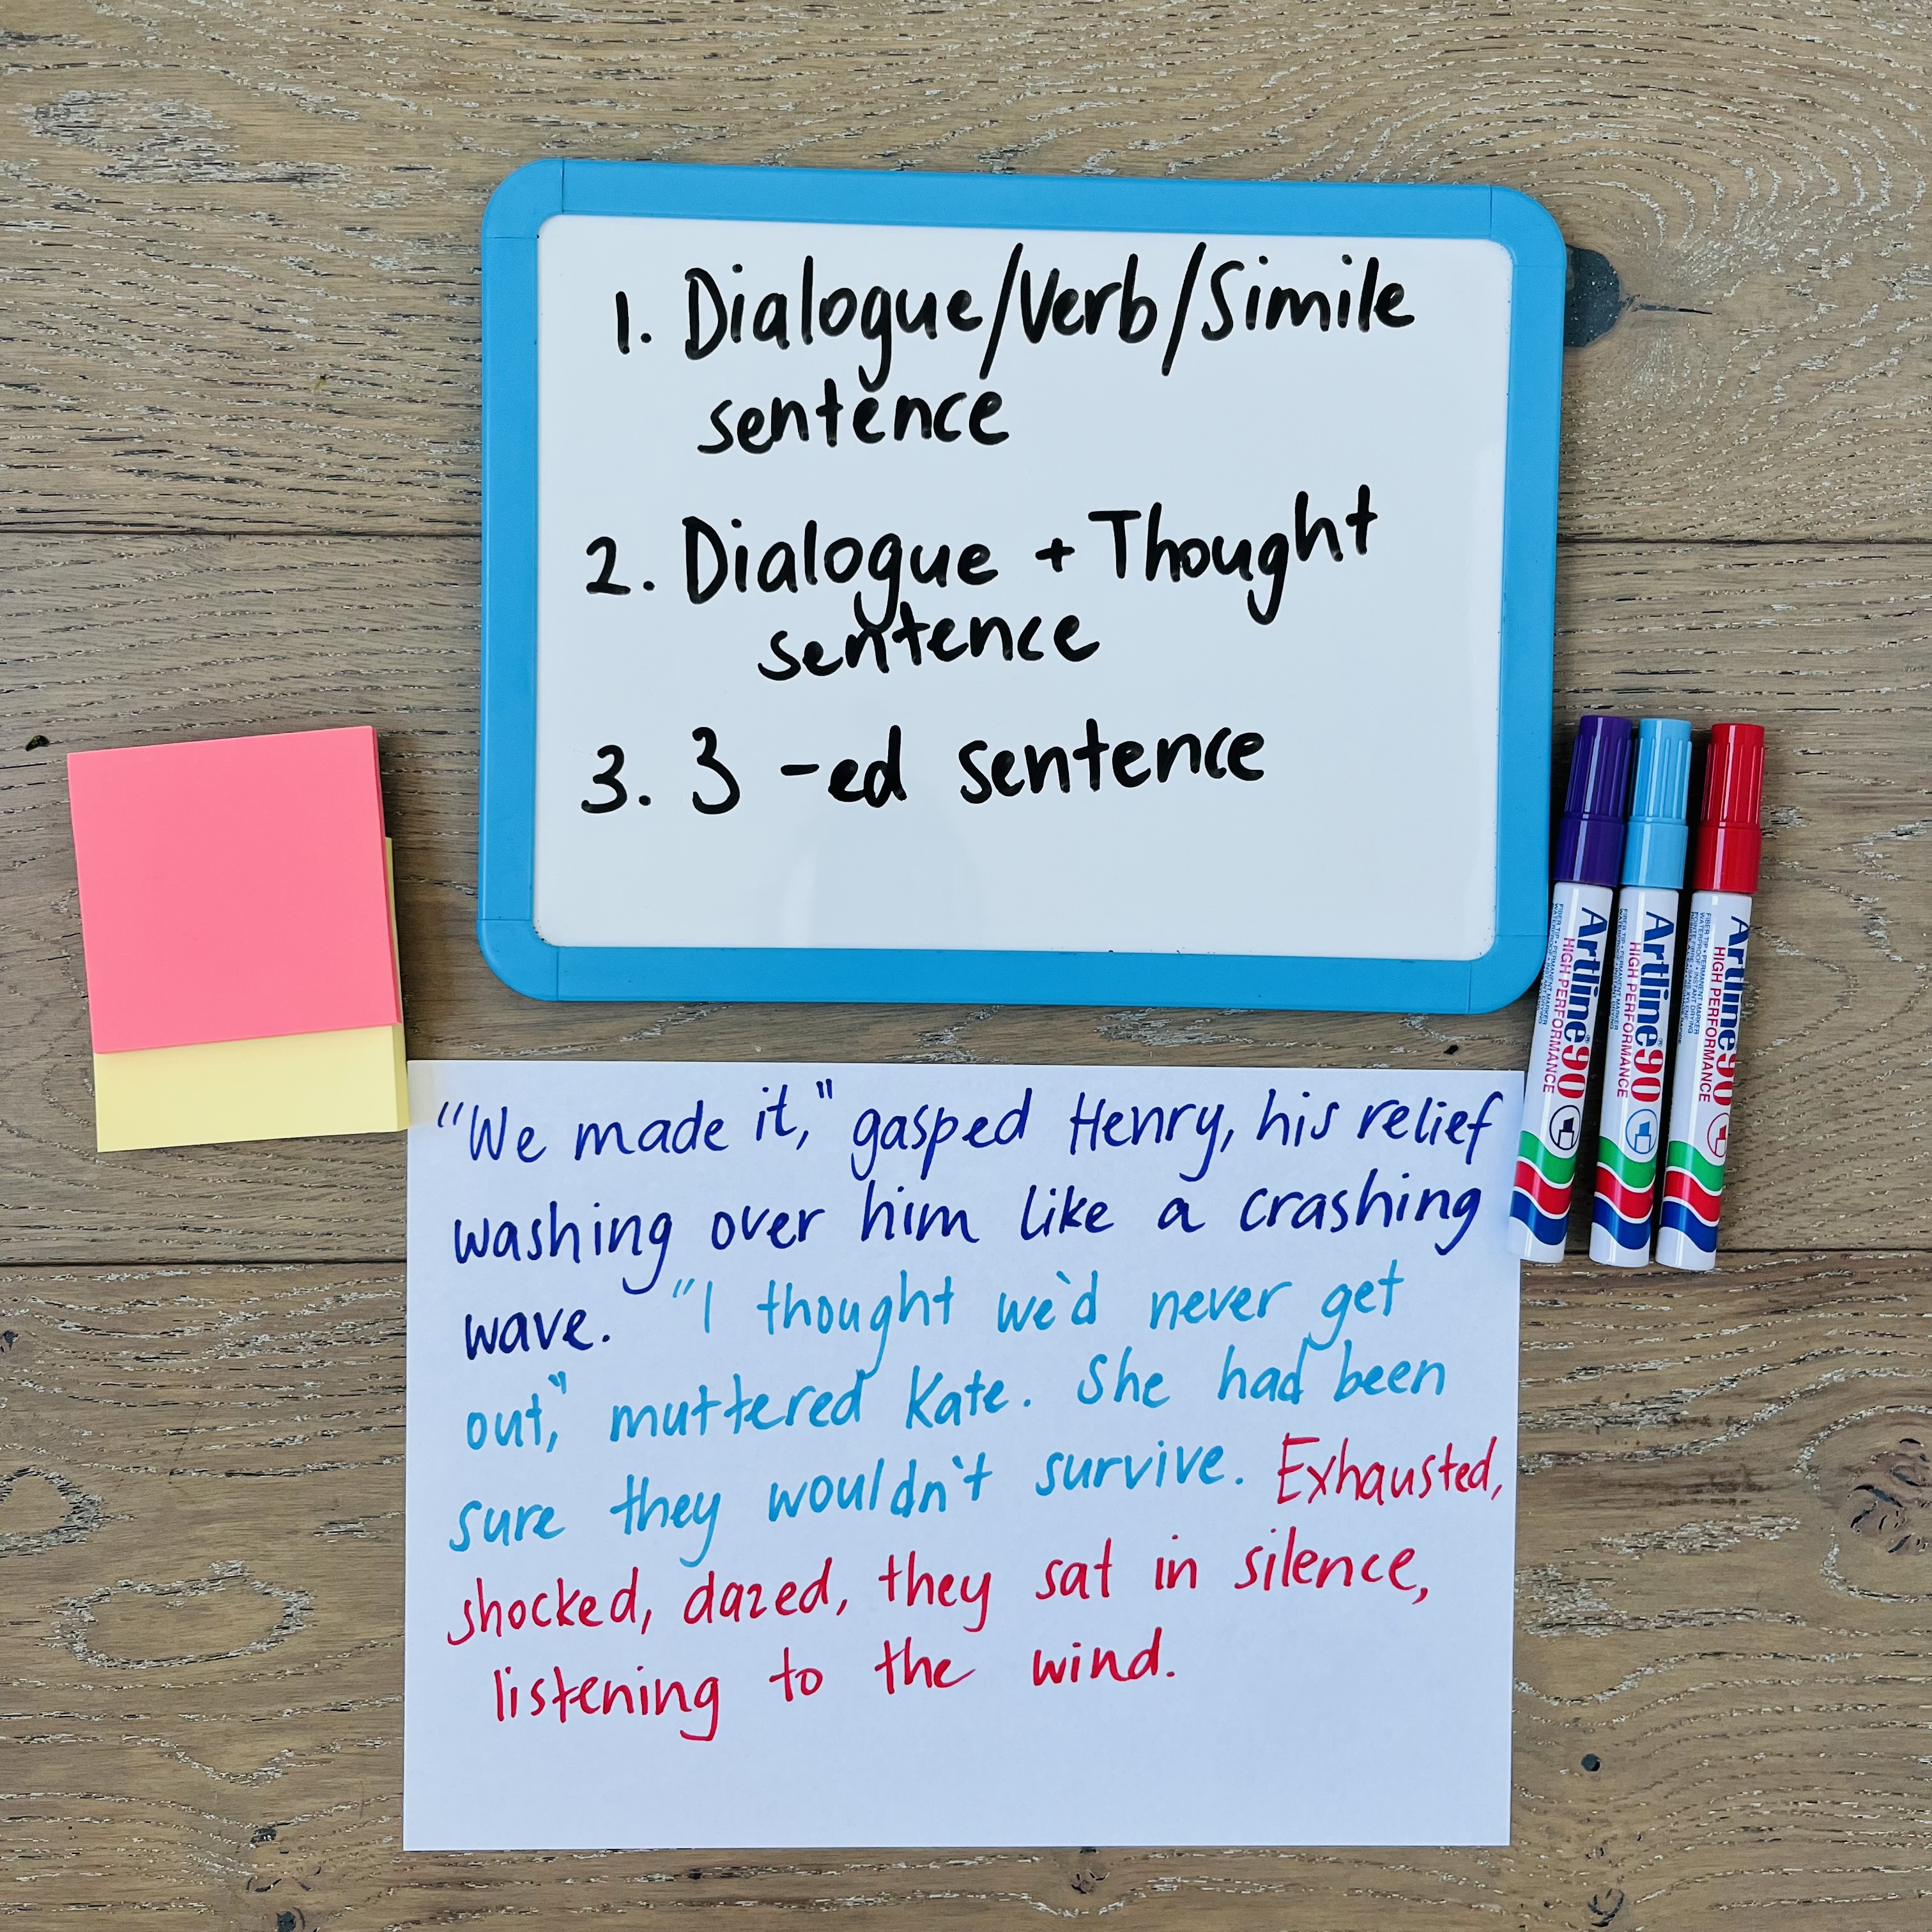 1. Dialogue/Verb/Simile
sentence
2. Dialogue + Thought
sentence
3. 3 -ed sentence
Artline®90
HIGH PERFORMANCE
Artline®90
HIGH PERFORMANCE
Artline 90
HIGH PERFORMANCE
"We made it," gasped Henry, his relief
washing over him like a crashing
wave. "I thought we'd never get
out," muttered Kate. She had been
sure they wouldn't survive. Exhausted,
shocked, dazed, they sat in silence,
listening to the wind.